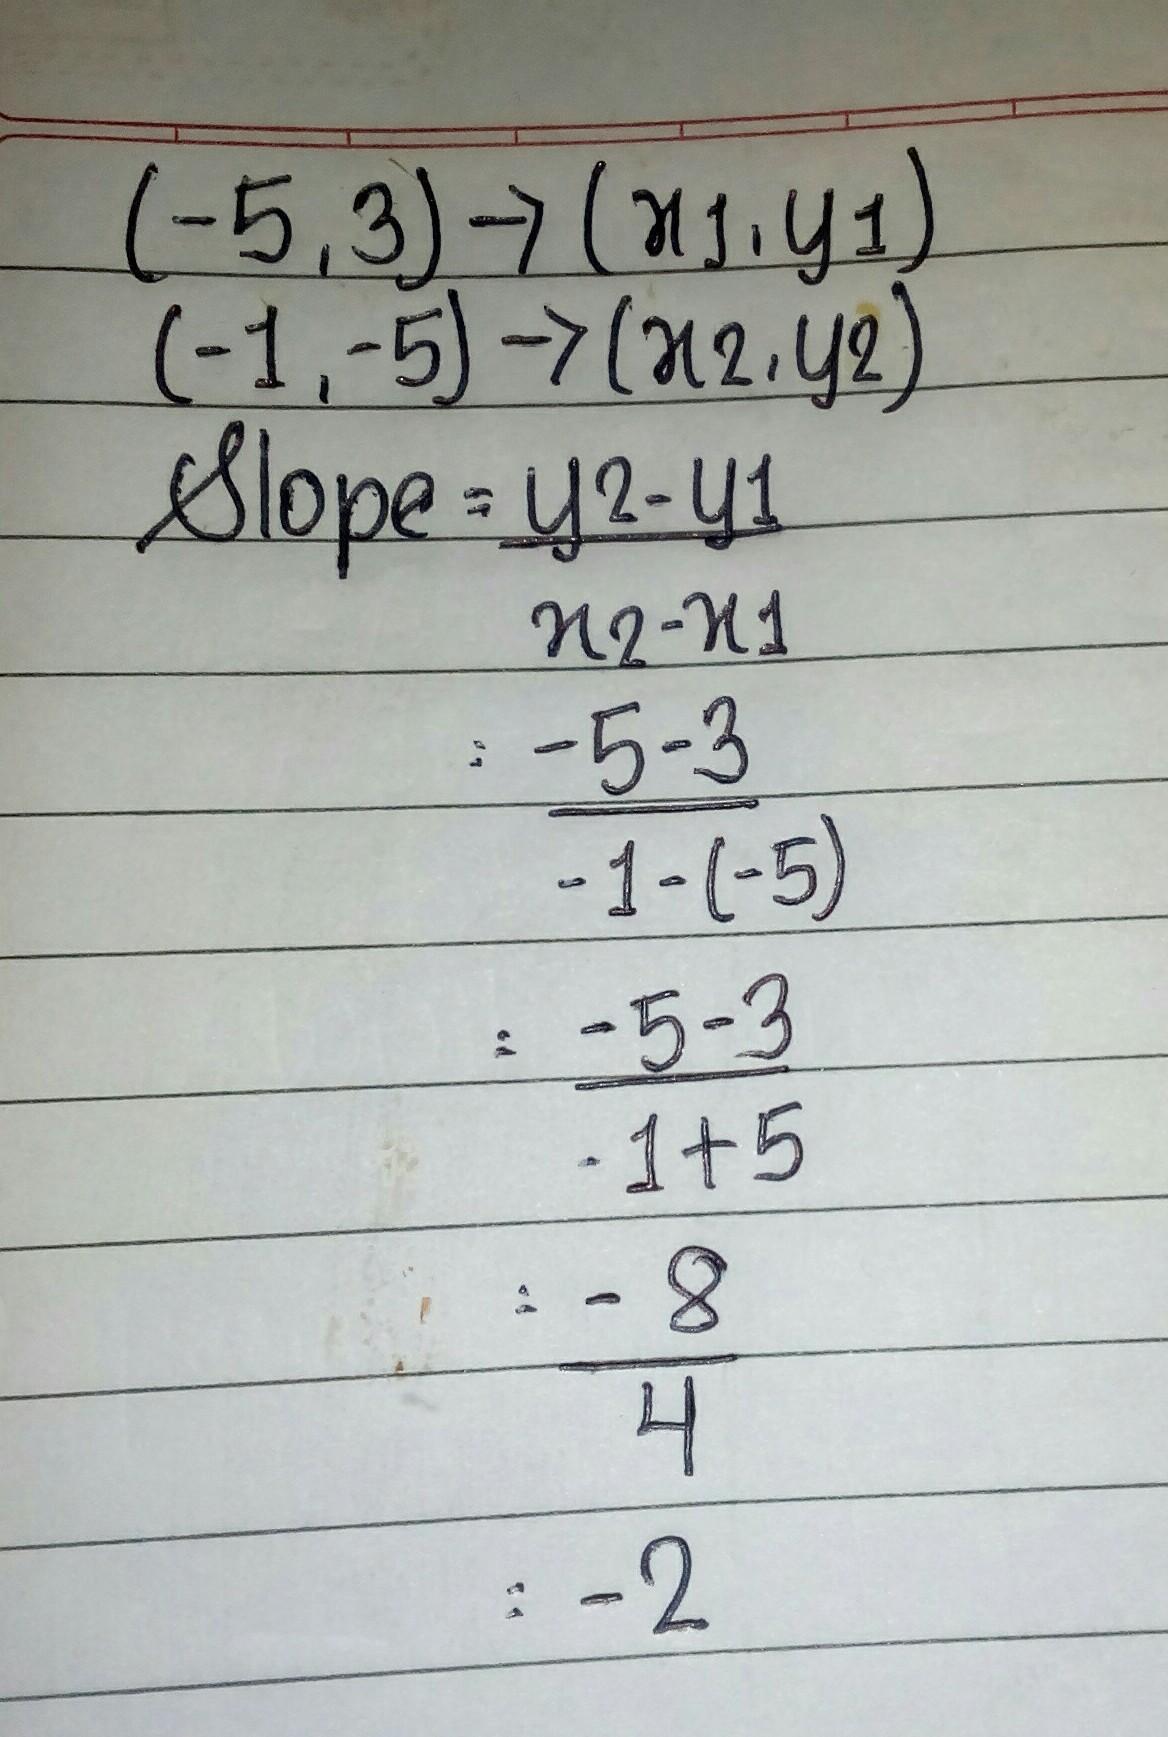 (-5,3)→(x1,y1)
(-1,-5)→(x2,y2)
Slope = y2-y1
x2-x1
= -5-3
-1-(-5)
= -5-3
-1+5
= -8
4
= -2